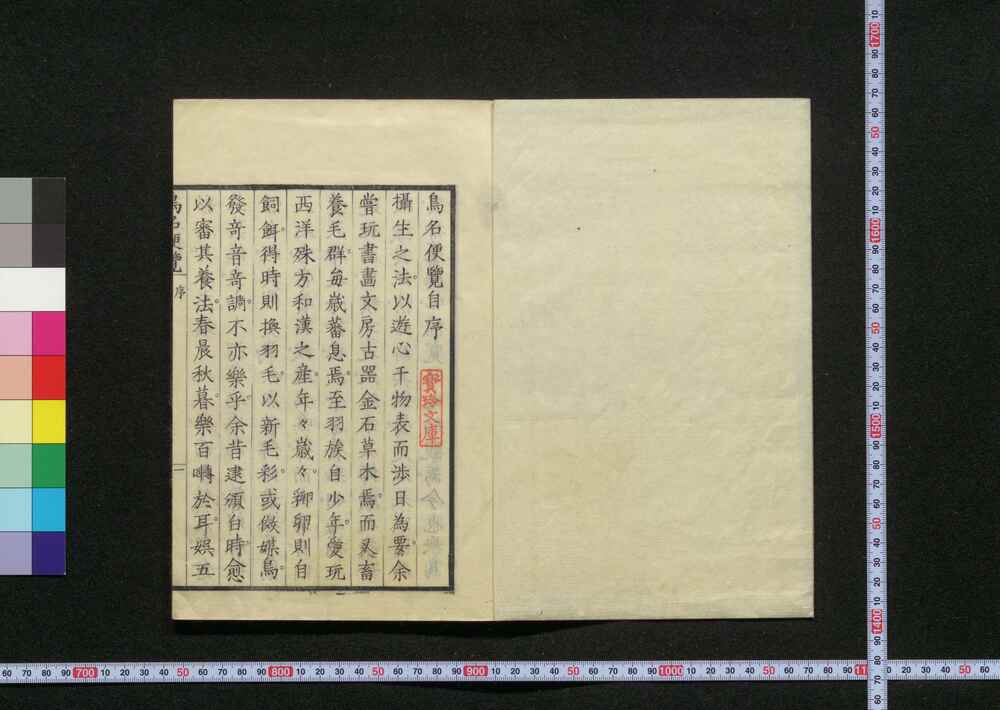 鳥名便覽自序
寶玲文庫
攝生之法。以遊心于物表而渉日為要。余
嘗玩書畵文房古器金石草木焉。而又畜
養毛群每歳蕃息焉。至羽族自少年。愛玩
西洋殊方和漢之產。年々歳々。孵卵則自
飼餌。得時則換羽毛。以新毛彩。或做媒鳥。
發奇音奇調。不亦樂乎。余昔逮頒白時。愈
以審其養法。春晨秋暮。樂百囀於耳。娯五
鳥名便覽
序
一